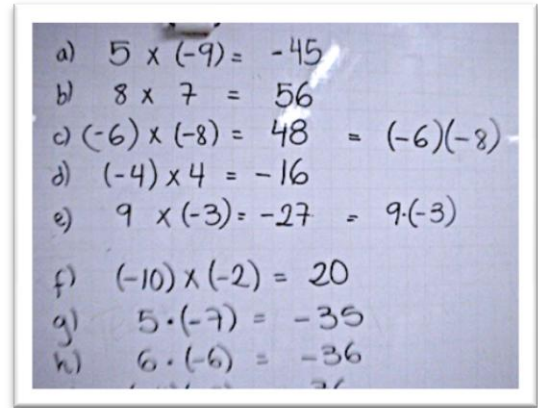 a) 5 x (-9) = -45
b) 8 x 7 = 56
c) (-6) x (-8) = 48 = (-6)(-8)
d) (-4) x 4 = -16
e) 9 x (-3) = -27 = 9·(-3)
f) (-10) x (-2) = 20
g) 5·(-7) = -35
h) 6·(-6) = -36